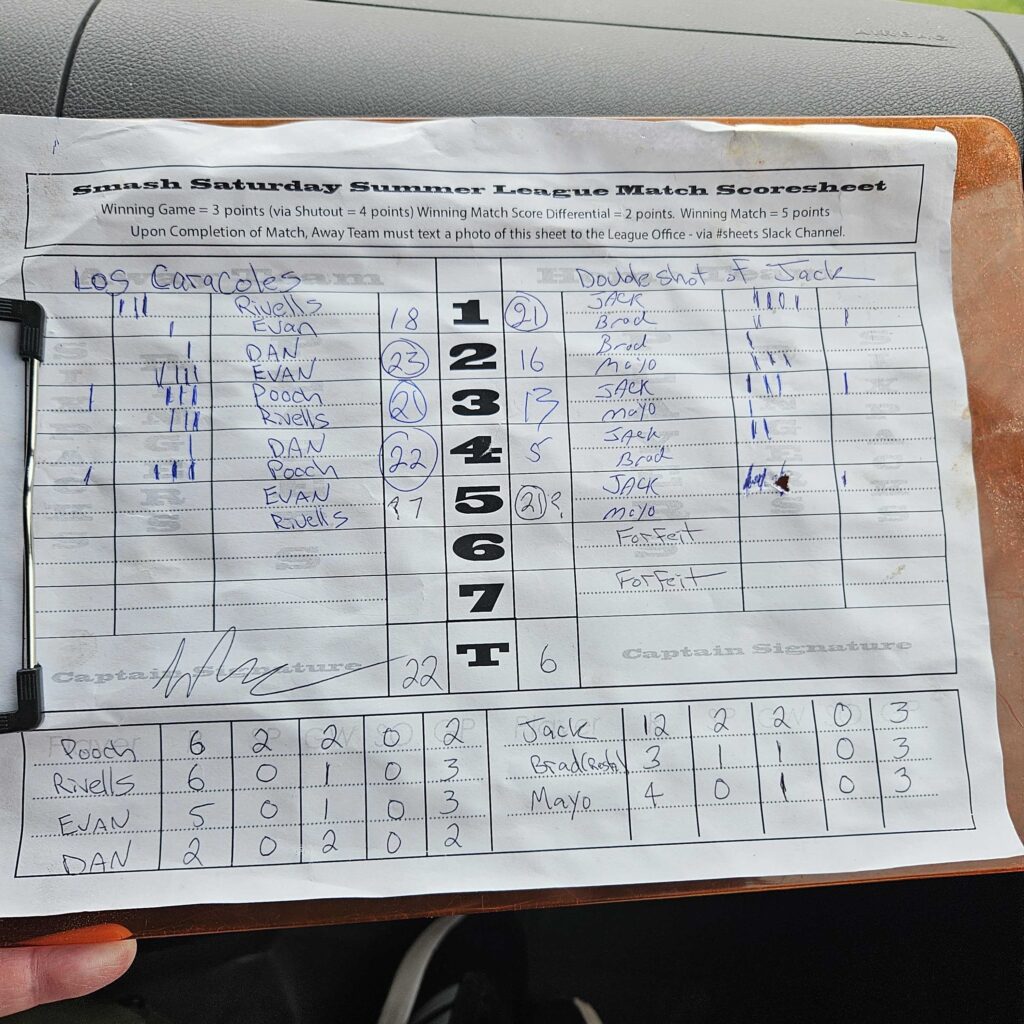 AIRBAG
Smash Saturday Summer League Match Scoresheet
Winning Game = 3 points (via Shutout = 4 points) Winning Match Score Differential = 2 points. Winning Match = 5 points
Upon Completion of Match, Away Team must text a photo of this sheet to the League Office - via #sheets Slack Channel.
Los Caracoles Doubleshot of Jack
Rivells 18 1 21 JACK
Evan Brad
DAN 23 2 16 Brad
EVAN Mayo
Pooch 21 3 13 JACK
Rivells Mayo
DAN 22 4 5 JACK
Pooch Brad
EVAN ?7 5 21? JACK
Rivells Mayo
6 Forfeit
7 Forfeit
Captain Signature 22 T 6 Captain Signature
Pooch 6 2 2 0 2 Jack 12 2 2 0 3
Rivells 6 0 1 0 3 Brad 3 1 1 0 3
EVAN 5 0 1 0 3 Mayo 4 0 1 0 3
DAN 2 0 2 0 2